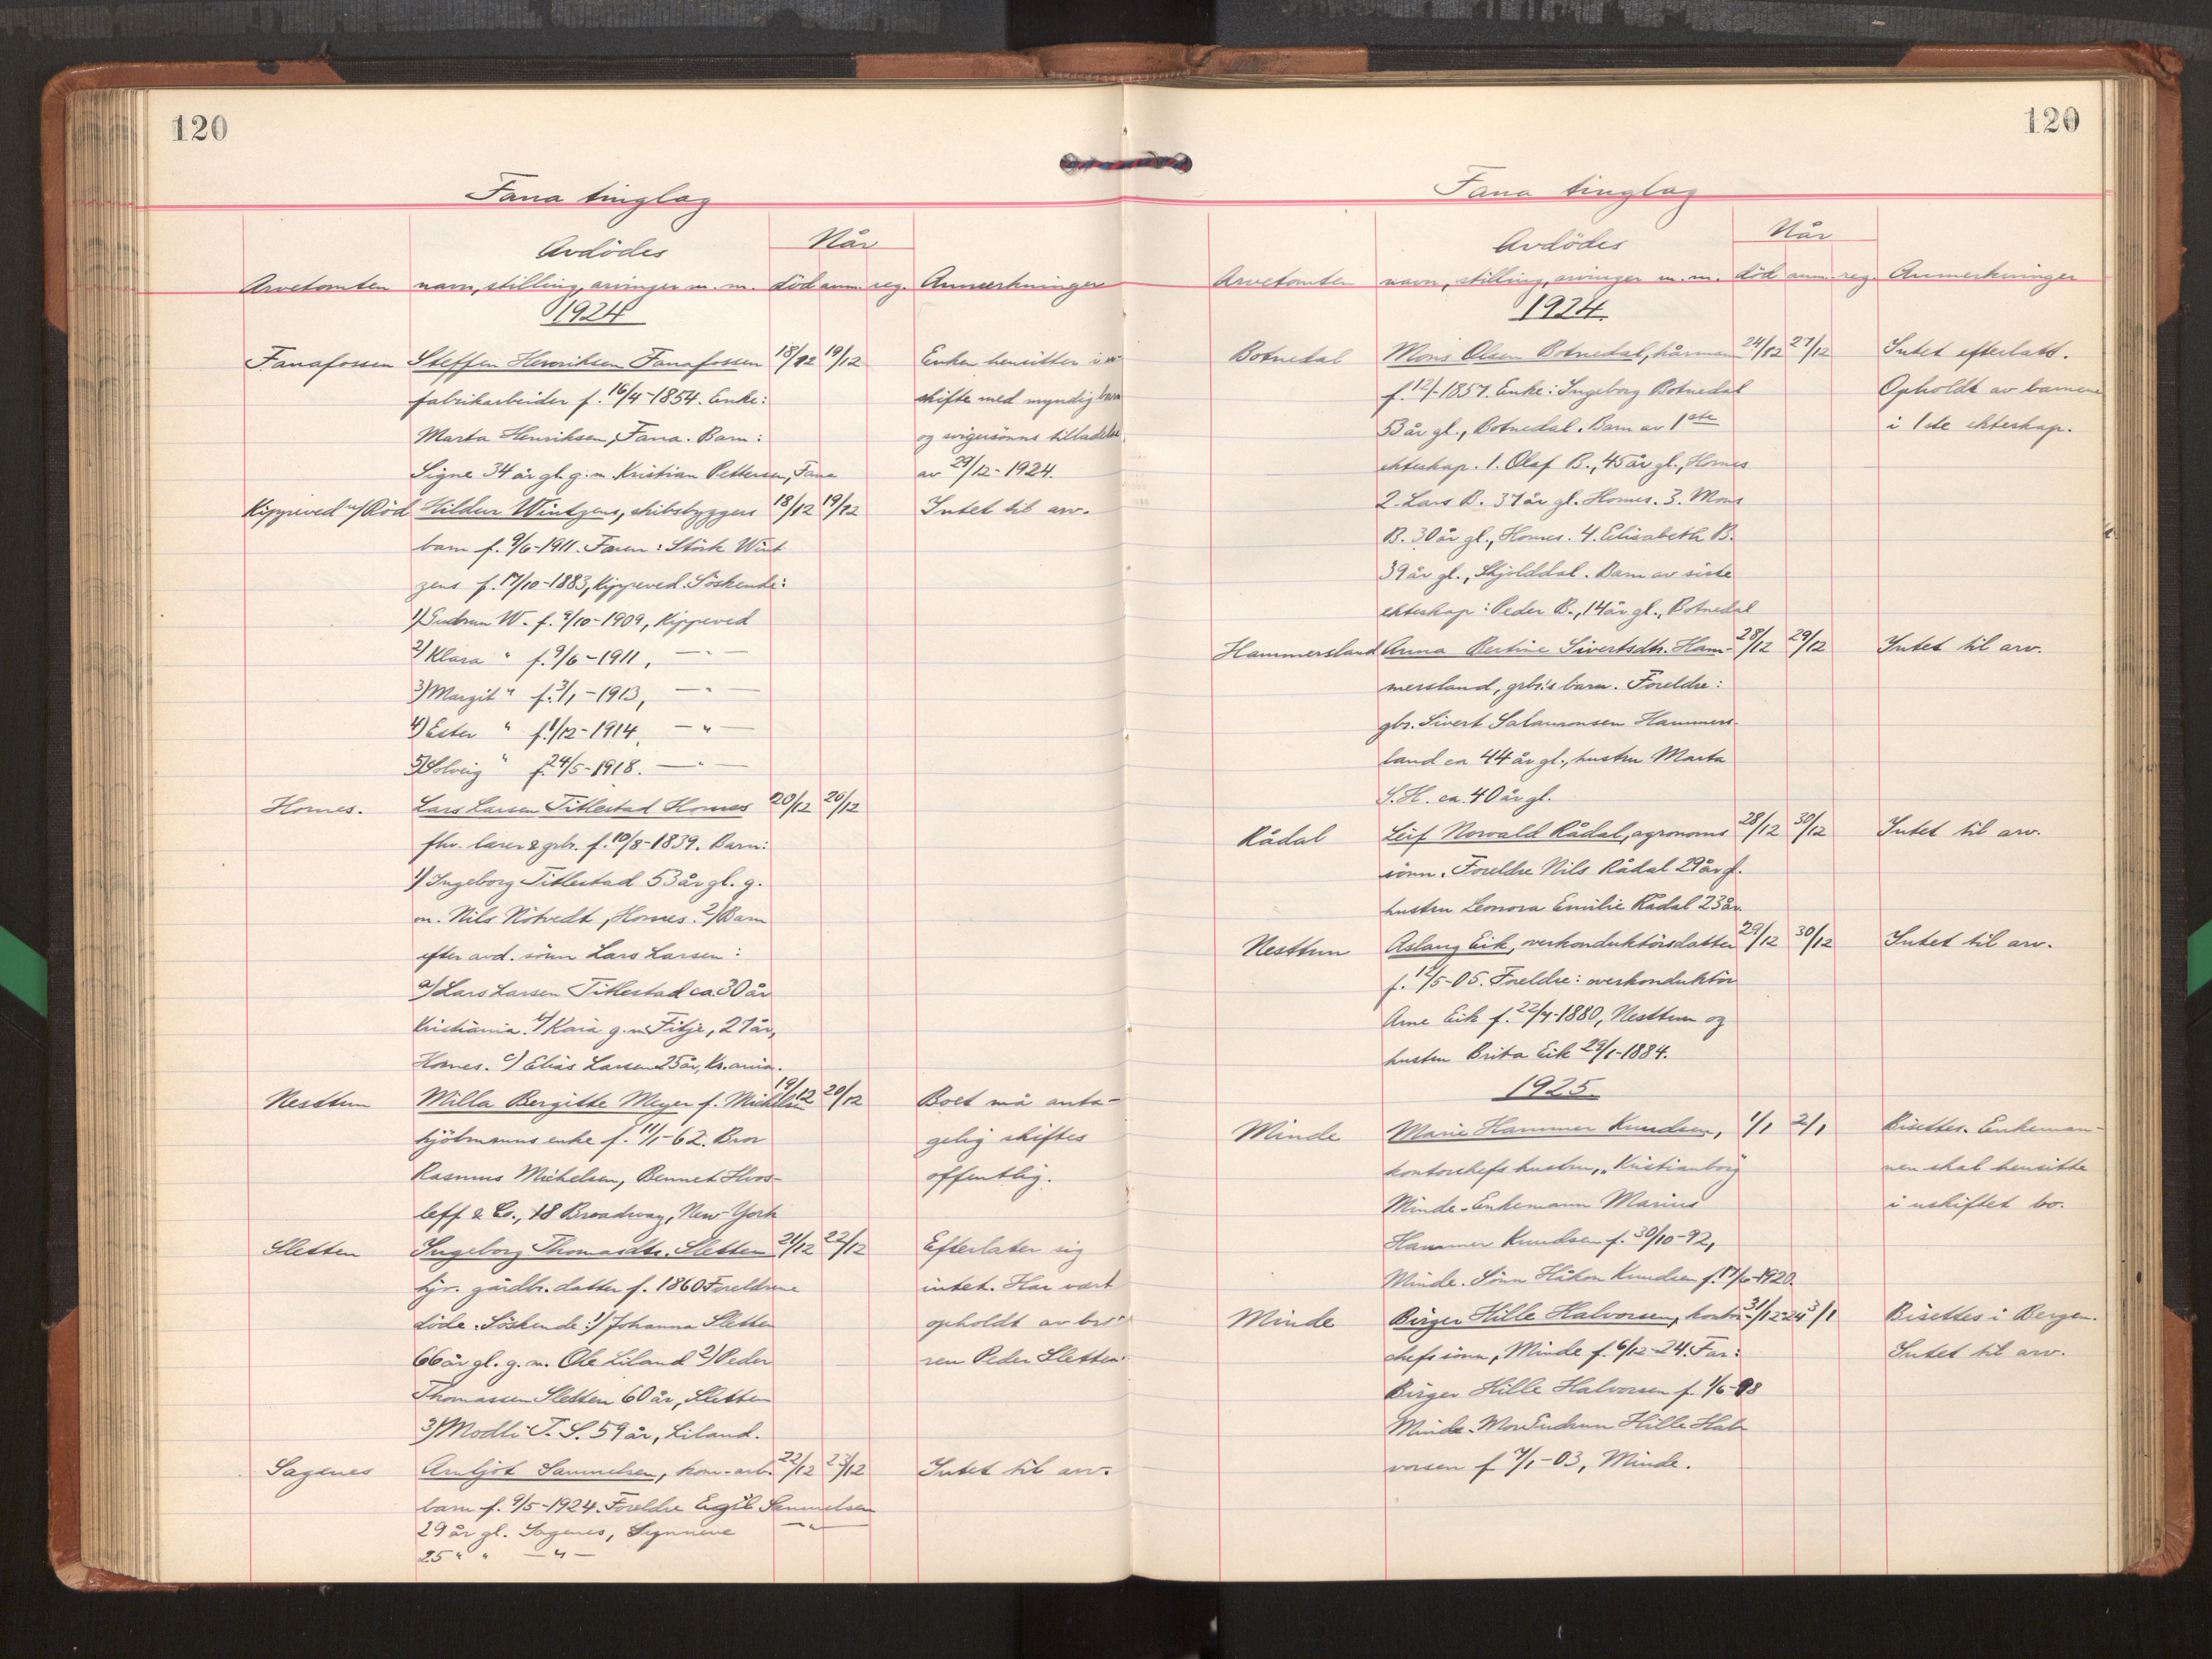 120
Fana tinglag
Når
Avdödes
Arvetomten navn, stilling, arvinger m. m. död anm. reg. Anmerkninger
1924
Fanafossen Steffen Henriksen Fanafossen 18/12 19/12 Enken hensitter i
fabrikarbeider f. 16/4-1854. Enke: skifte med myndig barn
Marta Henriksen, Fana. Barn: og svigersönns tilladelse
Signe 34 år gl. g. m. Kristian Pettersen, Fana av 29/12-1924.
Kippeved u/Röd Hildur Wintzens, skibsbyggers 18/12 19/12 Intet til arv.
barn f. 9/6-1911. Faren: Störk Wint-
zens f. 17/10-1883, Kippeved. Söskende:
1) Gudrun W. f. 9/10-1909, Kippeved
2) Klara " f. 9/6-1911, — " —
3) Margit " f. 3/1-1913, — " —
4) Ester " f. 1/12-1914, — " —
5) Solveig " f. 24/5-1918. — " —
Homes. Lars Larsen Titlestad Homes 20/12 26/12
fhv. lærer & gbr. f. 10/8-1839. Barn:
1) Ingeborg Titlestad 53 år gl. g.
m. Nils Nötvedt, Homes. 2) Barn
efter avd. sönn Lars Larsen:
a) Lars Larsen Titlestad ca. 30 år
Kristiania. b) Kaia g. m. Fitje, 27 år,
Homes. c) Elias Larsen 25 år, Kr.ania.
Nesttun Milla Bergitte Meyer f. Michelsen 19/12 20/12 Boet må anta-
hjölmanns enke f. 11/1-62. Bror gelig skiftes
Rasmus Michelsen, Bennet Hvos- offentlig.
leff & Co., 18 Broadway, New-York
Sletten Ingeborg Thomasdtr. Sletten 21/12 22/12 Efterlater sig
tjr. gårdbr. datter f. 1860 Foreldrene intet. Har vært
döde. Söskende: 1) Johanna Sletten opholdt av bro-
66 år gl. g. m. Ole Liland 2) Peder ren Peder Sletten.
Thomassen Sletten 60 år, Sletten
3) Modli T. S. 59 år, Liland.
Sagenes Arnljot Samuelsen, kom-arb. 22/12 23/12 Intet til arv.
barn f. 9/5-1924. Foreldre Egil Samuelsen
29 år gl. Sagenes, Synneve — " —
25 " " — " —
120
Fana tinglag
Når
Avdödes
Arvetomten navn, stilling, arvinger m. m. död anm. reg. Anmerkninger
1924
Botnedal Mons Olsen Botnedal, kårmann 24/12 27/12 Intet efterlatt.
f. 12/-1857. Enke: Ingeborg Botnedal Opholdt av barnene
53 år gl., Botnedal. Barn av 1ste i 1ste ekteskap.
ekteskap. 1. Olaf B., 45 år gl., Homes
2. Lars B. 37 år gl. Homes. 3. Mons
B. 30 år gl., Homes. 4. Elisabeth B.
39 år gl., Skjolddal. Barn av siste
ekteskap: Peder B., 14 år gl., Botnedal
Hammersland Anna Bertine Sivertsdtr. Ham- 28/12 29/12 Intet til arv.
mersland, gbr.s barn. Foreldre:
gbr. Sivert Salamonsen Hammers-
land ca 44 år gl., hustru Marta
S. H. ca. 40 år gl.
Rådal Leif Norvald Rådal, agronoms 28/12 30/12 Intet til arv.
sönn. Foreldre Nils Rådal 29 år gl.
hustru Leonora Emilie Rådal 23 år.
Nesttun Aslaug Eik, overkonduktörsdatter 29/12 30/12 Intet til arv.
f. 12/5-05. Foreldre: overkonduktör
Arne Eik f. 22/4-1880, Nesttun og
hustru Brita Eik 29/1-1884.
1925.
Minde Marie Hammer Knudsen, 1/1 2/1 Bisettes. Enkeman-
kontorchefs hustru, "Kristianborg" nen skal hensitte
Minde. Enkemann Marius i uskiftet bo.
Hammer Knudsen f. 30/10-92,
Minde. Sönn Håkon Knudsen f. 17/6-1920.
Minde Birger Hille Halvorsen, kontor- 31/12-24 3/1 Bisettes i Bergen.
chefs sönn, Minde f. 6/12-24. Far: Intet til arv.
Birger Hille Halvorsen f. 1/6-98
Minde. Mor Gudrun Hille Hal-
vorsen f 7/1-03, Minde.